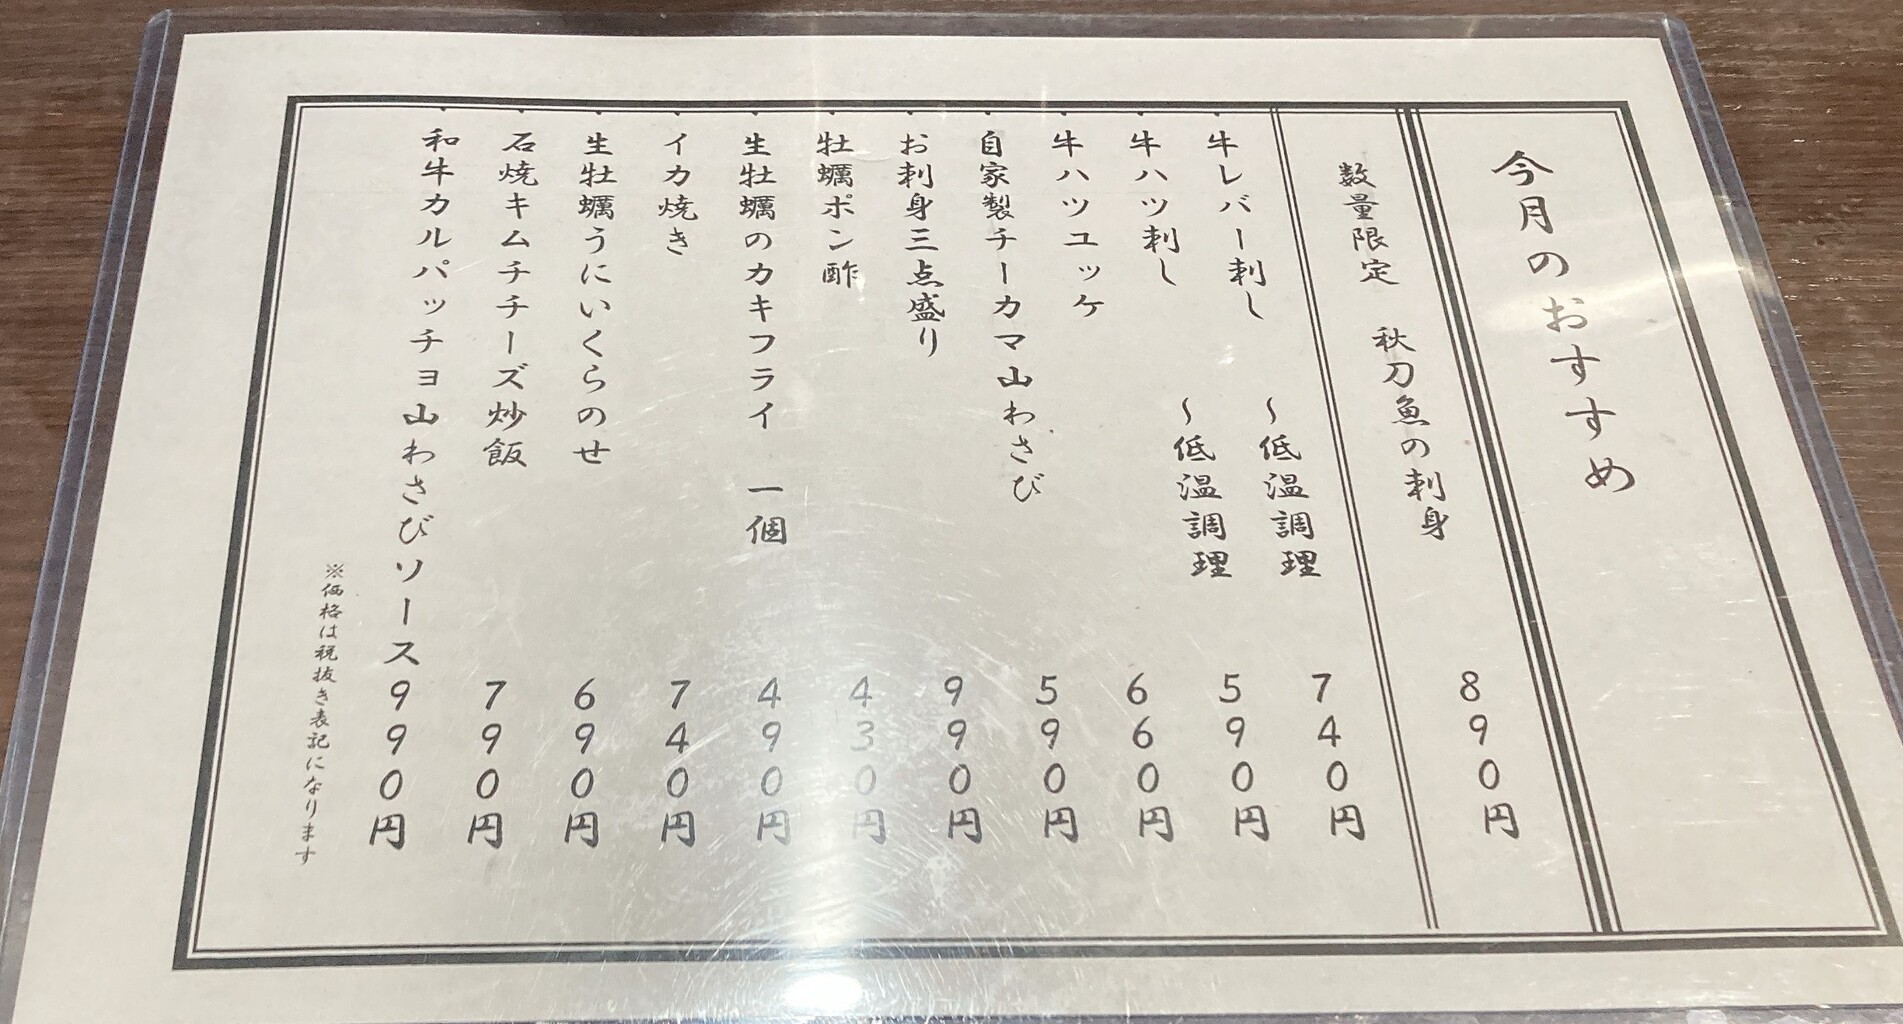 今月のおすすめ
数量限定 秋刀魚の刺身 890円
牛レバー刺し ～低温調理 740円
牛ハツ刺し ～低温調理 590円
牛ハツユッケ 660円
自家製チーカマ山わさび 590円
お刺身三点盛り 990円
牡蠣ポン酢 430円
生牡蠣のカキフライ 一個 490円
イカ焼き 740円
生牡蠣うにいくらのせ 690円
石焼キムチチーズ炒飯 790円
和牛カルパッチョ山わさびソース 990円
※価格は税抜き表記になります